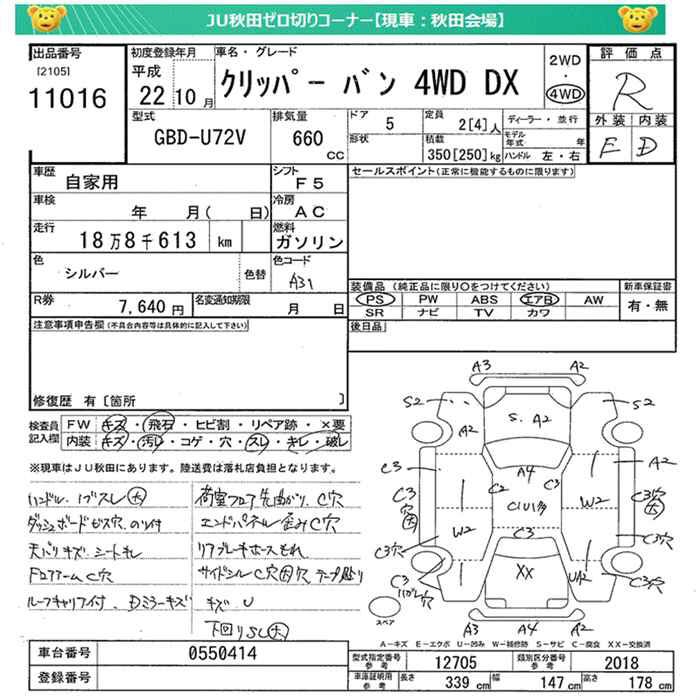 JU秋田ゼロ切りコーナー【現車：秋田会場】
出品番号
[2105]
11016
初度登録年月
平成
22年10月
車名・グレード
クリッパー バン 4WD DX
2WD
・
4WD
評価点
R
型式
GBD-U72V
排気量
660
CC
ドア
5
形状
定員
2[4]人
積載
350[250]kg
ディーラー・並行
モデル年式 年
ハンドル 左・右
外装 内装
E D
車歴
自家用
シフト
F5
車検
年 月( 日)
冷房
AC
走行
18万8千613 km
燃料
ガソリン
色
シルバー
色替
色コード
A31
R券
7,640円
名変通知期限
月 日
セールスポイント(正常に機能するものに限ります)
装備品(純正品に限り○をつけてください)
PS PW ABS エアB AW
SR ナビ TV カワ
新車保証書
有・無
後日品
注意事項申告欄(不具合内容等は具体的に記入して下さい)
修復歴 有[箇所 ]
検査員記入欄
FW キズ・飛石・ヒビ割・リペア跡・×要
内装 キズ・汚レ・コゲ・穴・スレ・キレ・破レ
※現車はJU秋田にあります。陸送費は落札店負担となります。
ハンドル、ノブスレ大
ダッシュボードビス穴、のり付
天バリキズ、シートキレ
Fロアアーム C穴
ルーフキャリア付、Dミラーキズ
荷室フロア先曲がり、C穴
エンドパネル歪みC穴
リアブレーキホースもれ
サイドシルC穴 穴 テープ貼り
キズ U
下回りSC大
A3
A2
S2
S2
A2
S.A2
C3
A4
A2
C2
C3
C3穴
W2
C1U1多
W2
C3穴
C3
C3穴
C3
XX
UA2
C3穴
スペア
A3
A4
A2
A−キズ E−エクボ U−凹み W−補修跡 S−サビ C−腐食 XX−交換済
車台番号
0550414
登録番号
型式指定番号
参考
12705
類別区分番号
参考
2018
車庫証明用
参考
長さ 339cm
幅 147cm
高さ 178cm